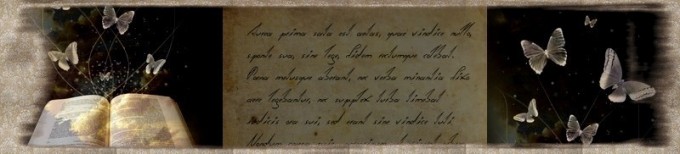 Aurea prima sata est aetas, quae vindice nullo,
sponte sua, sine lege, fidem rectumque colebat.
Poena metusque aberant, nec verba minantia fixo
aere legebantur, nec supplex turba timebat
iudicis ora sui, sed erant sine vindice tuti.
Nondum